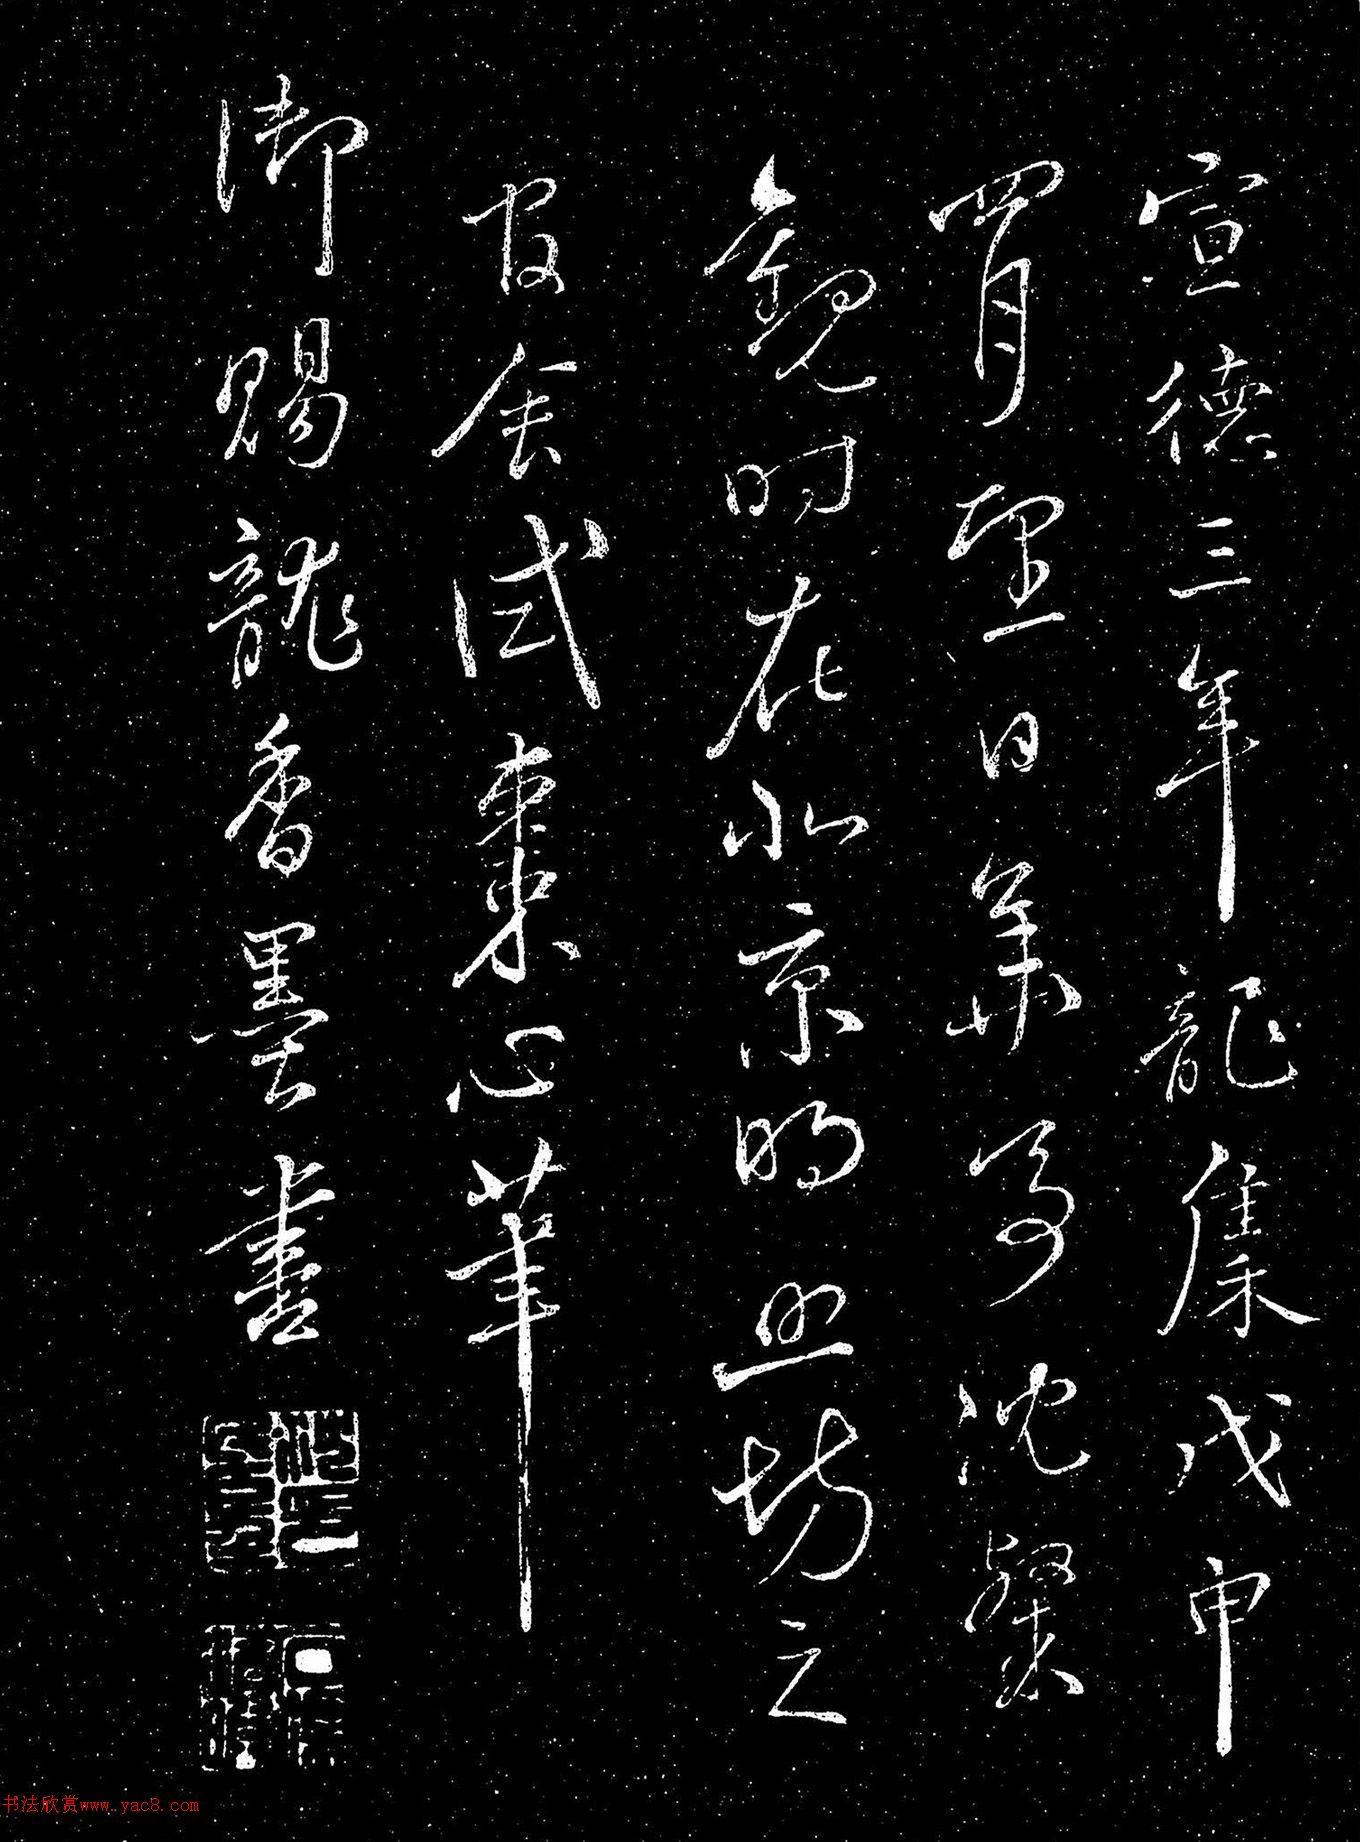 宣德三年龍集戊申
四月望日華亭沈粲
觀時在北京明照坊之
官舍試棗心筆
御賜龍香墨書
书法欣赏www.yac8.com